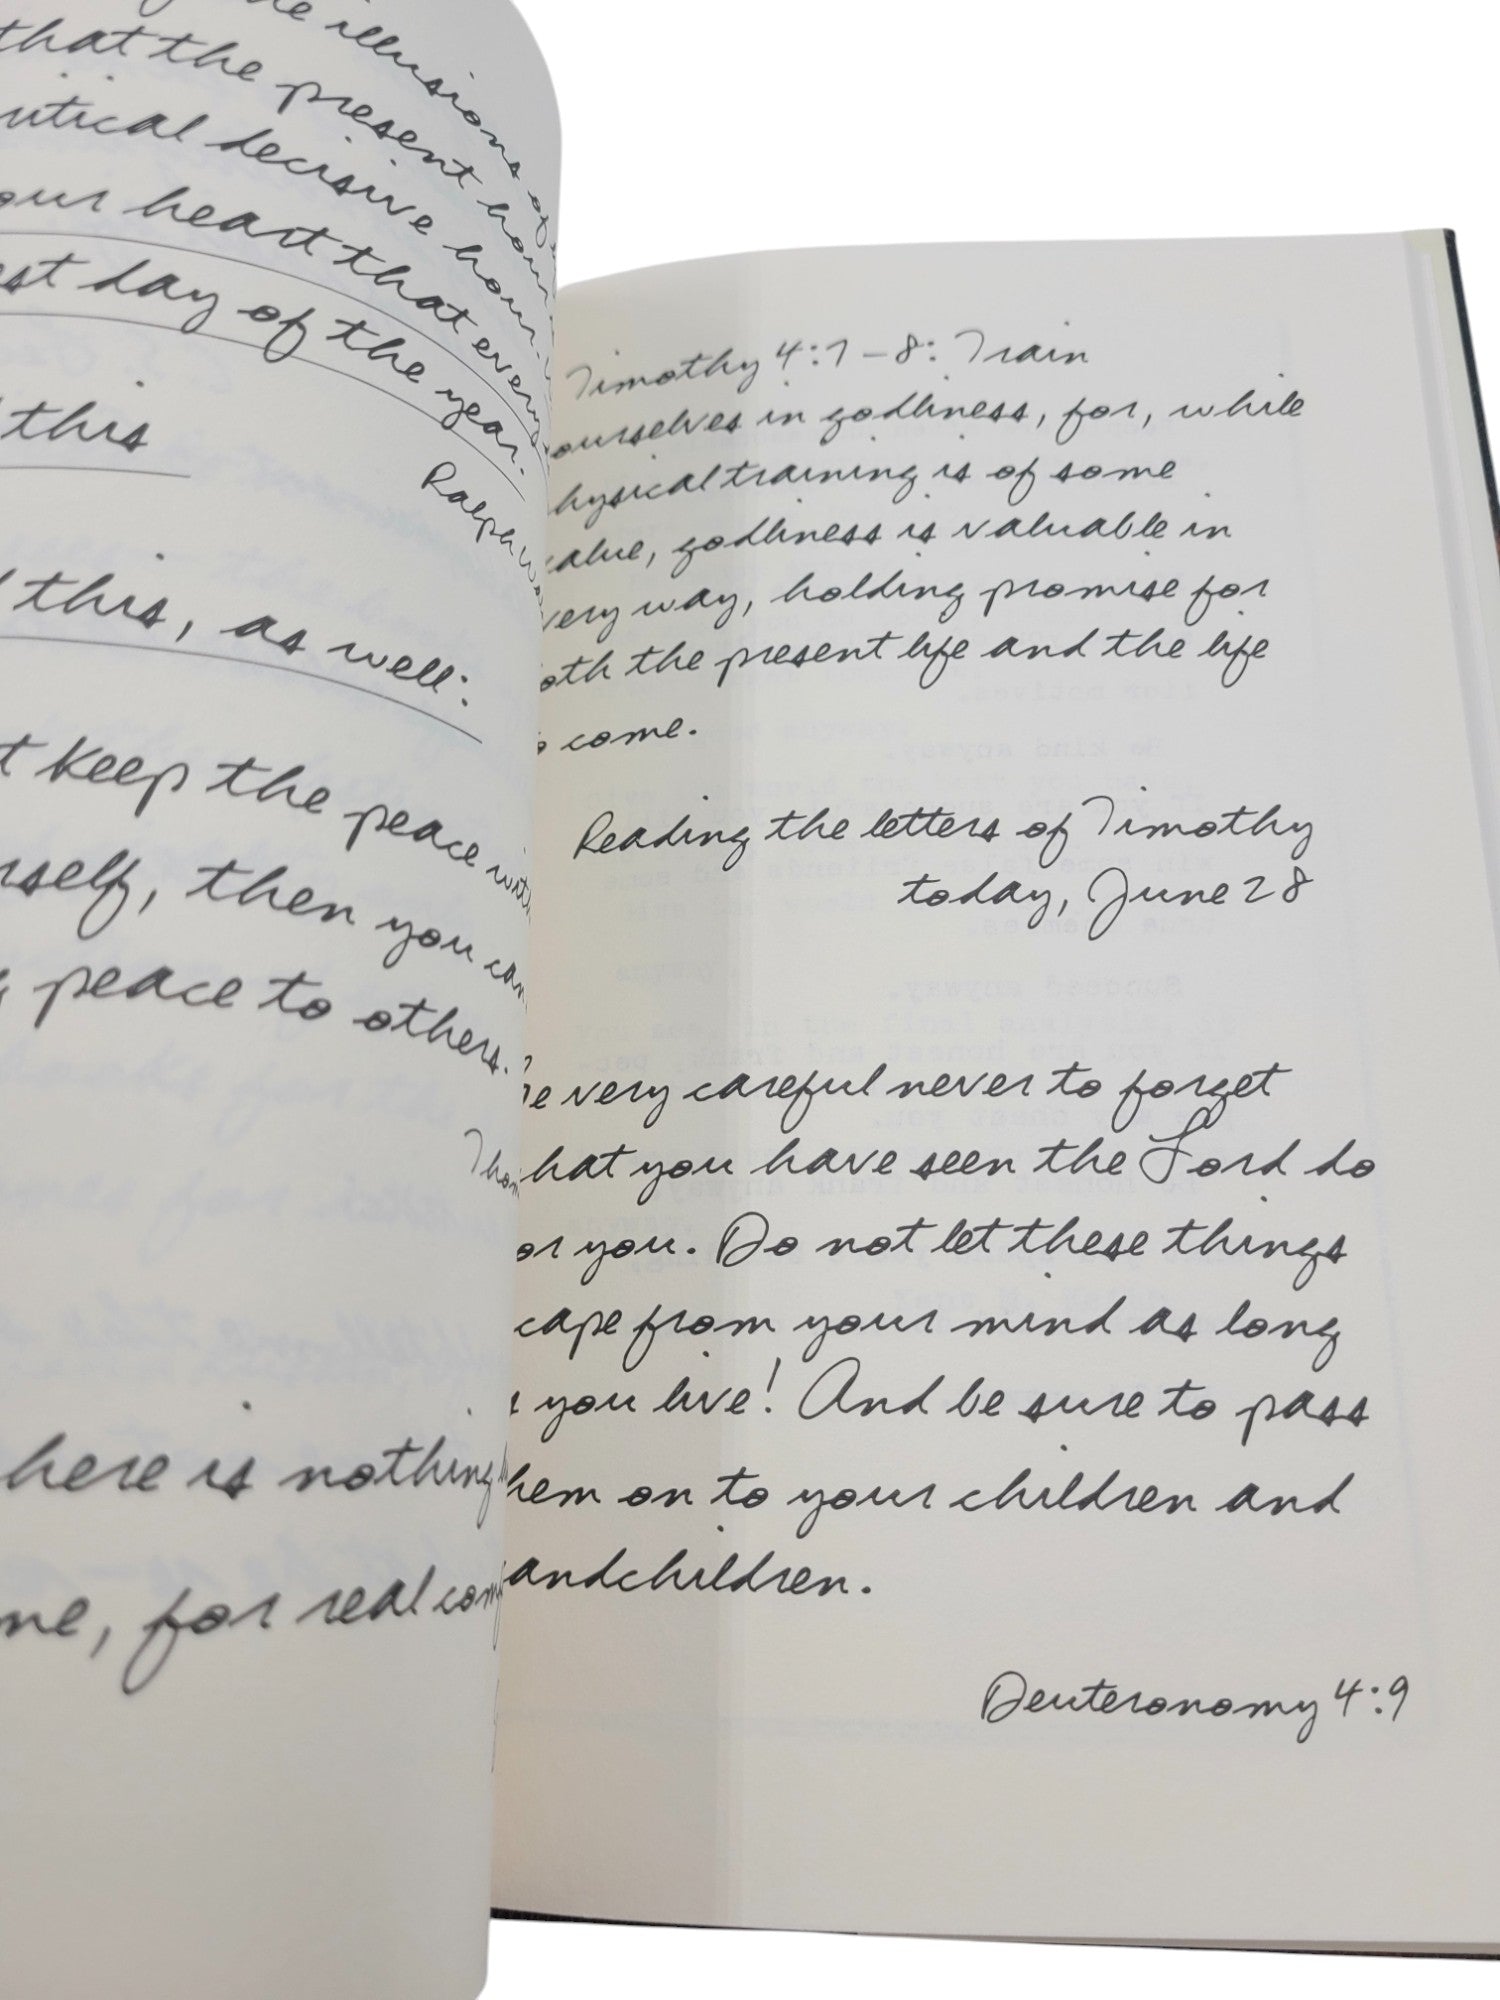 illusions of
that the present hour
critical decisive hour.
your heart that every
day of the year.
Ralph
this
this, as well:
keep the peace with
then you can
peace to others.
here is nothing
for real
Timothy 4:7-8: Train
ourselves in godliness, for, while
hysical training is of some
value, godliness is valuable in
very way, holding promise for
oth the present life and the life
come.
Reading the letters of Timothy
today, June 28
e very careful never to forget
hat you have seen the Lord do
or you. Do not let these things
cape from your mind as long
you live! And be sure to pass
hem on to your children and
andchildren.
Deuteronomy 4:9